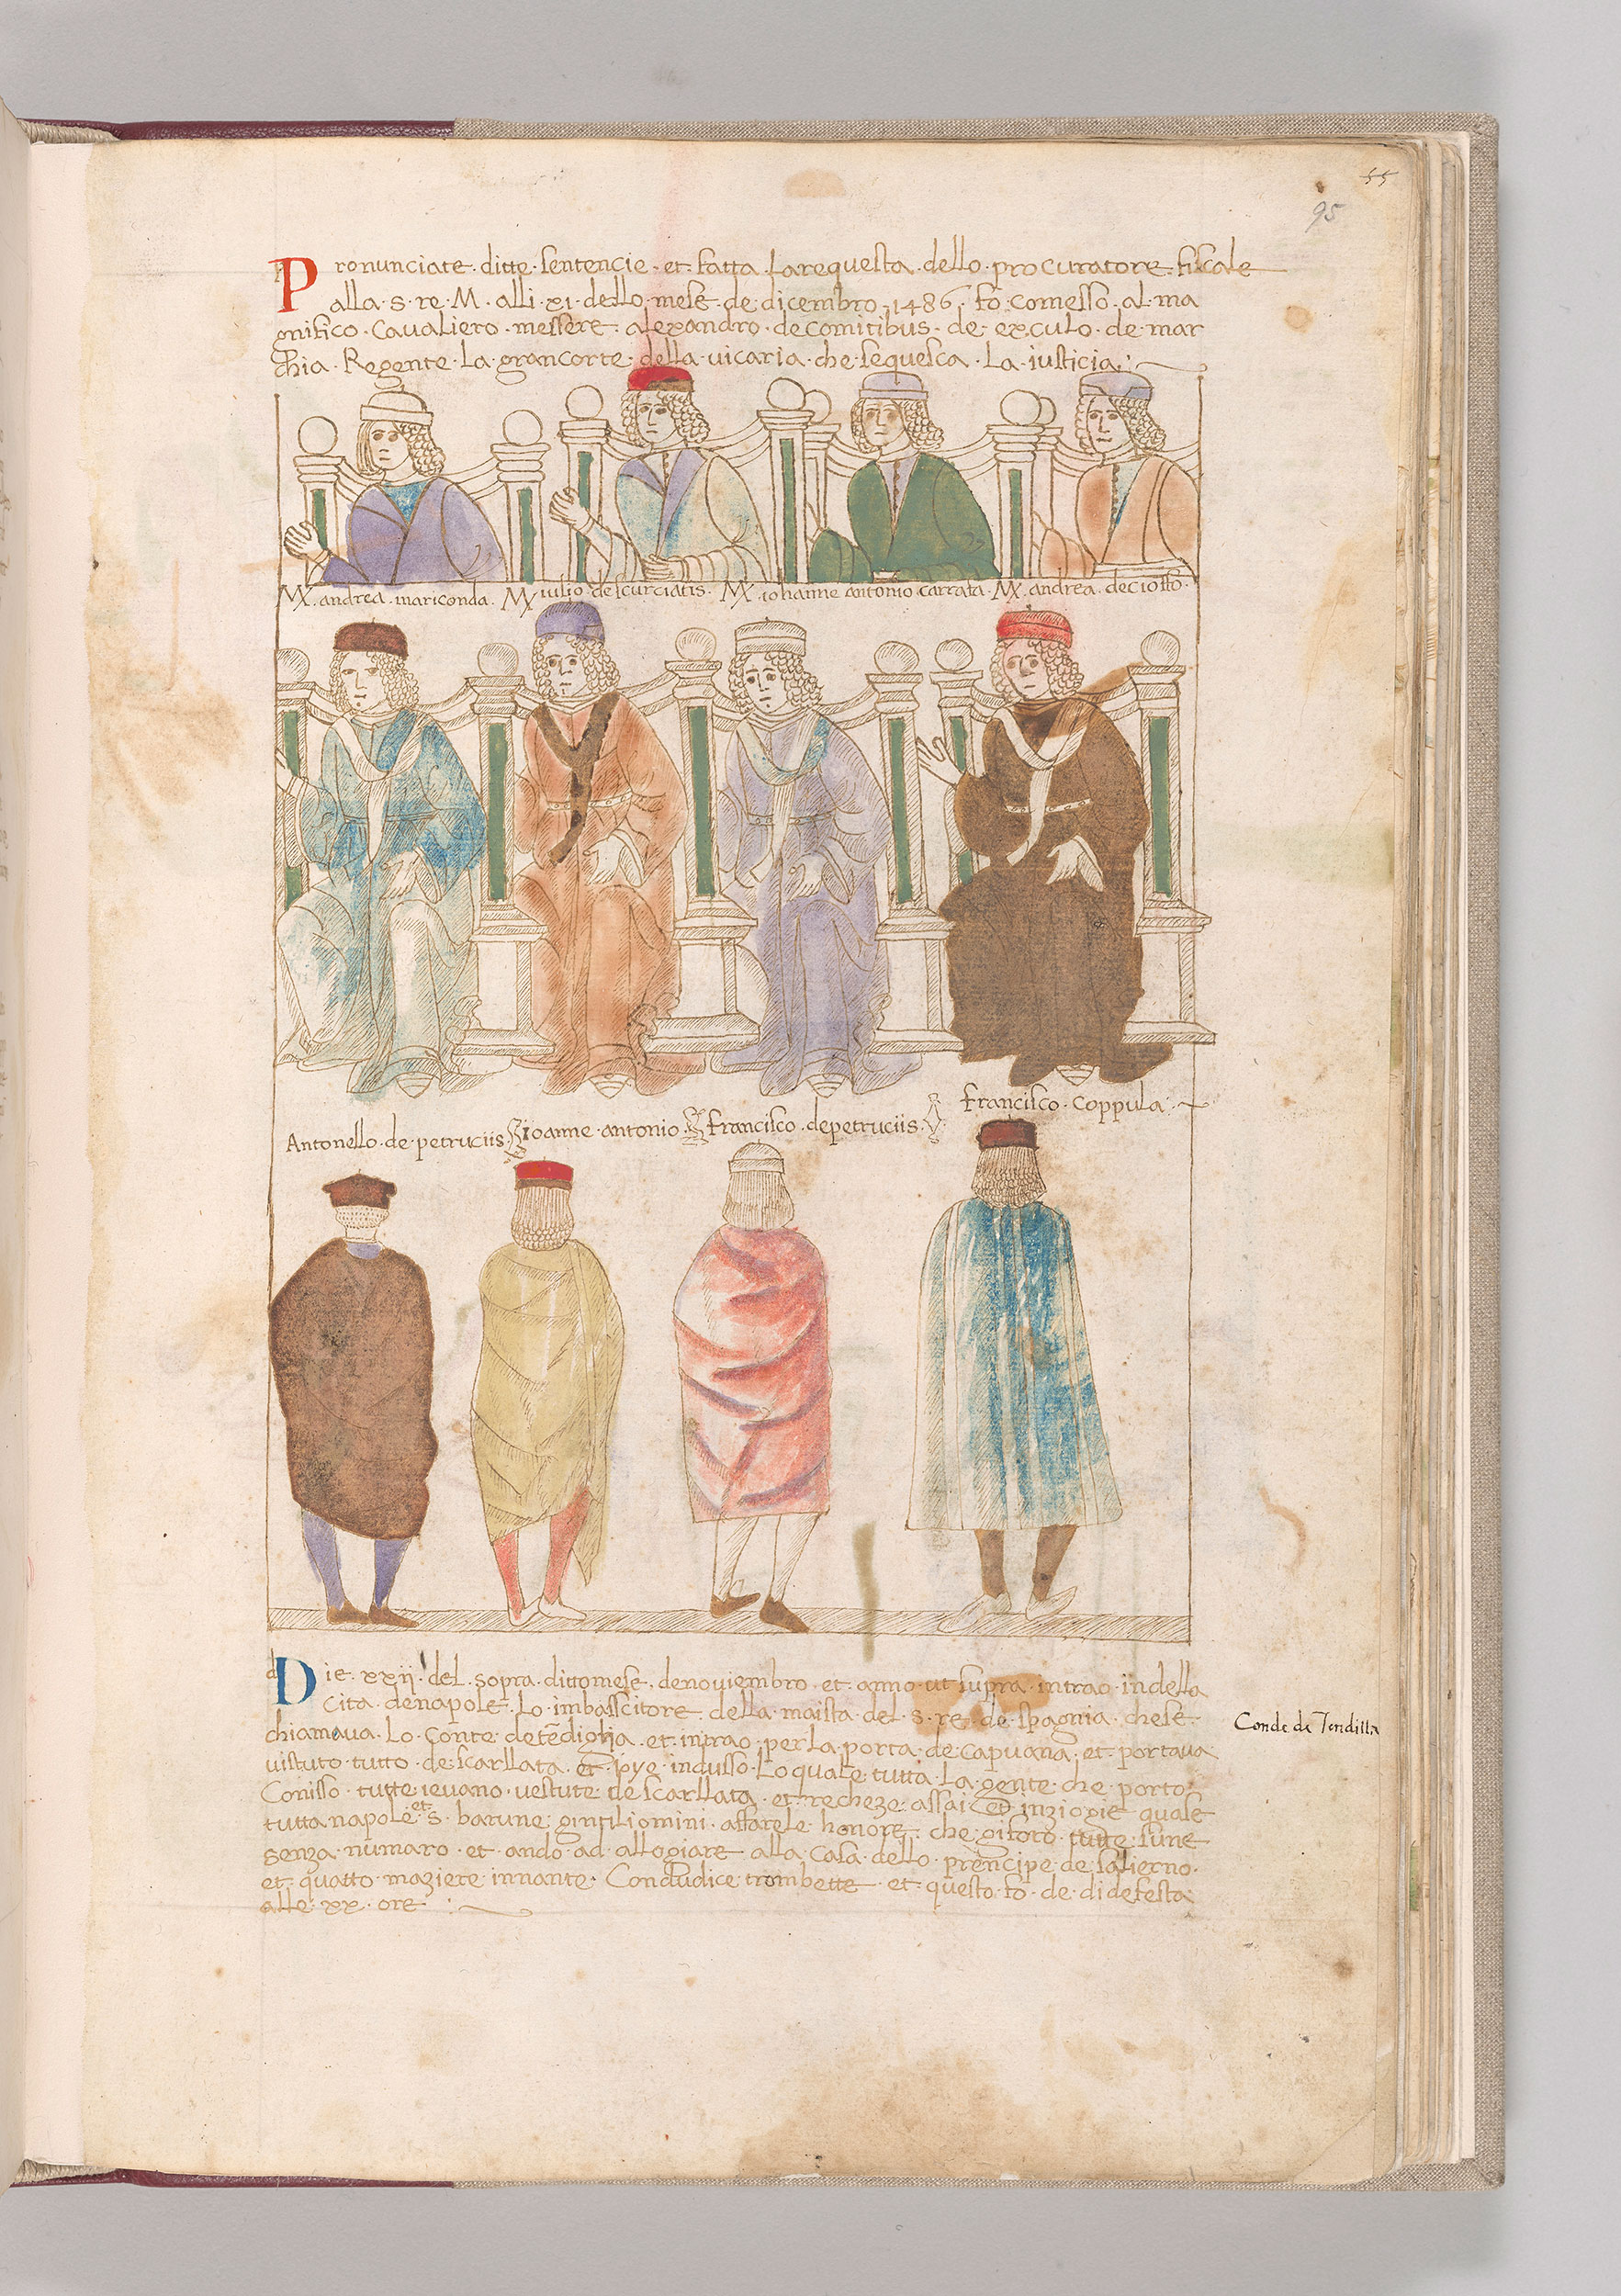 55
95
Pronunciate · ditte · sentencie · et · fatta · Larequesta · dello · procuratore · fiscale
alla · s · re · M · alli · xi · dello · mese · de · dicembro · 1486 · fo · comesso · al · ma
gnifico · Cavaliero · messere · alexandro · decomitibus · de · exculo · de · mar
chia · Regente · La · grancorte · della · vicaria · che · sequesca · La · iusticia ·
MX · andrea · mariconda · MX iulio · descurciatis · MX · iohanne antonio carrafa · MX · andrea · deciosso ·
Francisco · Coppula ·
Antonello · de · petruciis · ioanne · antonio · francisco · depetruciis ·
Die · xxij · del · sopra · dittomese · denoviembro · et · anno · ut supra · intrao · indella
Cita · denapole · Lo · imbasscitore · della · maista · del · s · re · de · spagnia · chese ·
chiamava · Lo · Conte · detēdiglia · et · intrao · perLa · porta · de · Capuana · et · portava
vistuto · tutto · de · scarllata · et · pye · indusso · Lo quale · tutta · La · gente · che · porto
Conisso · tutte · ievano · vestute · de scarllata · et · recheze · assai · Et inziogie · quale
tutta napole · et s · barune · gintiliomini · affarele · honore · che · gi foro · tutte · fune
senza · numaro · et · ando · ad · allogiare · alla · Casa · dello · prencipe · de · salierno ·
et · quatto · maziere · innante · Condudice · trombette · et · questo · fo · de · didefesta
alle · xx · ore
Conde de Tendilla